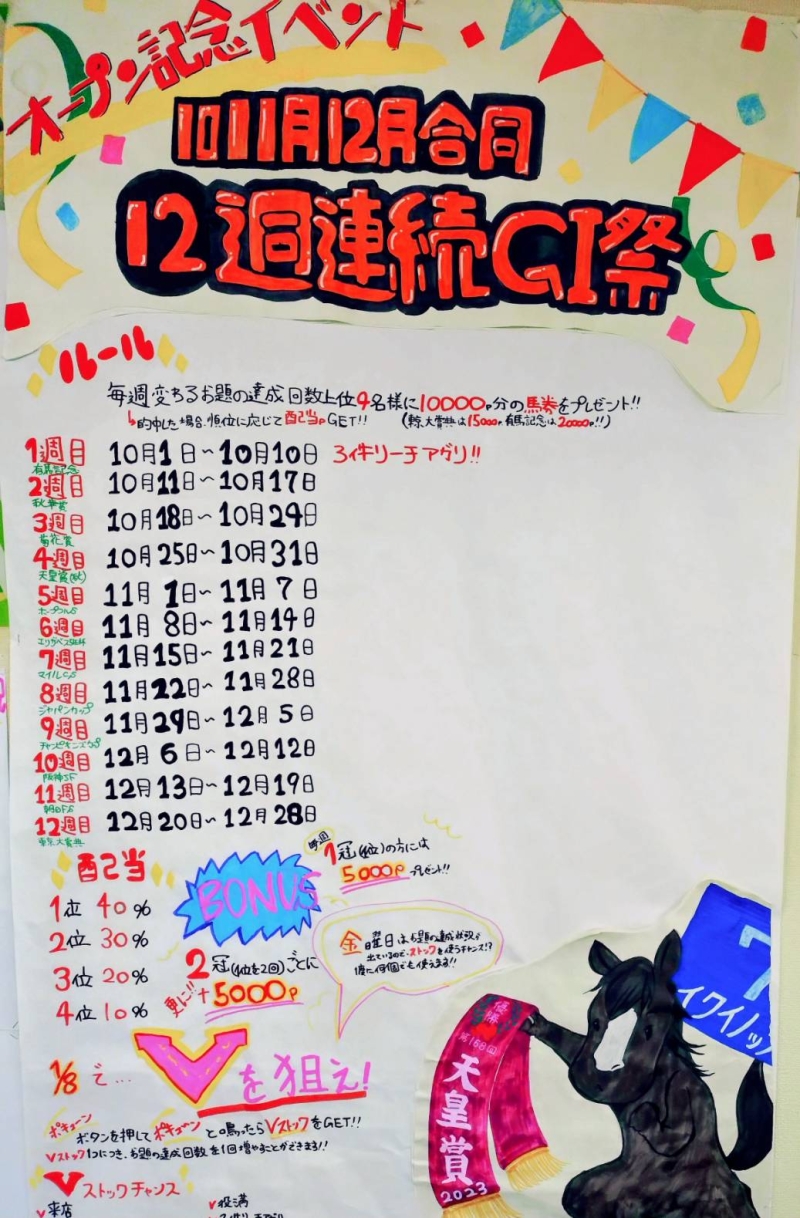 オープン記念イベント
10 11月12月合同
12週連続GI祭
ルール
毎週変わるお題の達成回数上位4名様に10000P分の馬券をプレゼント!!
↳的中した場合、順位に応じて配当P GET!! (東京大賞典は15000P 有馬記念は20000P!!)
1週目 10月1日~10月10日 3バ牛リーチアグリ!!
有馬記念
2週目 10月11日~10月17日
秋華賞
3週目 10月18日~10月24日
菊花賞
4週目 10月25日~10月31日
天皇賞(秋)
5週目 11月1日~11月7日
6週目 11月8日~11月14日
エリザベス女王杯
7週目 11月15日~11月21日
マイルCS
8週目 11月22日~11月28日
ジャパンカップ
9週目 11月29日~12月5日
チャンピオンズカップ
10週目 12月6日~12月12日
阪神JF
11週目 12月13日~12月19日
朝日FS
12週目 12月20日~12月28日
東京大賞典
配当
1位 40%
2位 30%
3位 20%
4位 10%
BONUS
毎週
1冠(1位)の方には
5000P プレゼント!!
2冠(1位を2回)ごとに
更に!!+5000P
金曜日はお題の達成状況が
出ているので、ストックを使うチャンス!?
1/8で…Vを狙え!
ボタンを押してポキューンと鳴ったらVストックをGET!!
Vストック1つにつき、お題の達成回数を1回増やすことができます!!
Vストックチャンス
V来店
V役満
優勝
第168回
天皇賞
2023
7
イクイノック